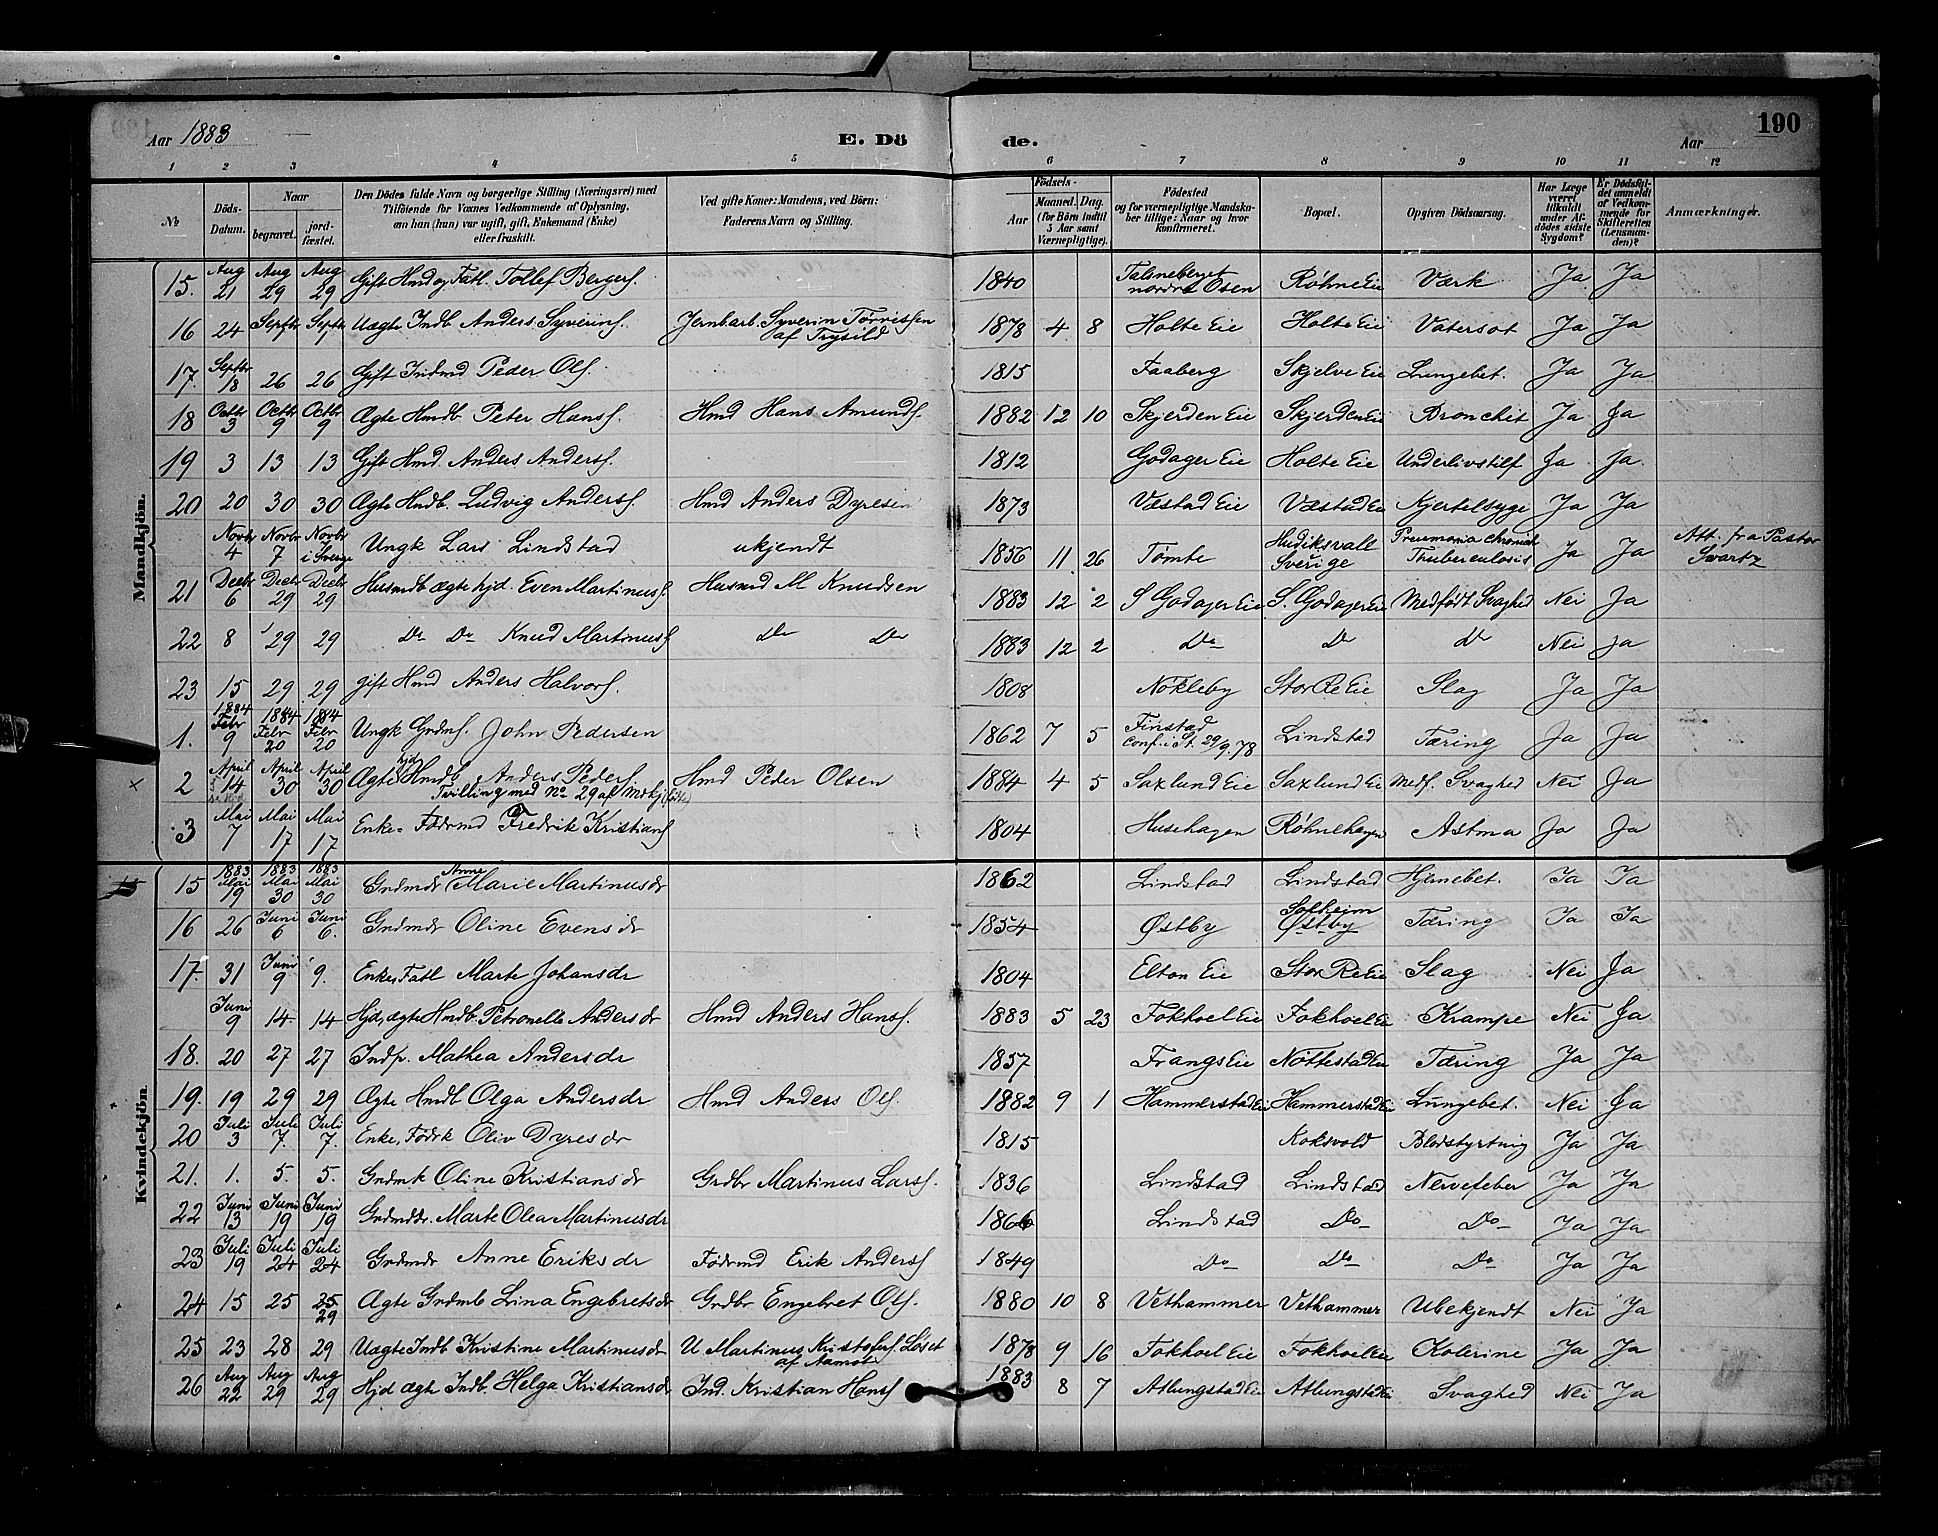 Aar 1883 E. Döde. Aar 190
1 2 3 4 5 6 7 8 9 10 11 12
No | Döds-Datum. | Naar begravet. | jord-fæstet. | Den Dödes fulde Navn og borgerlige Stilling (Næringsvei) med Tilföiende for Voxnes Vedkommende af Oplysning, om han (hun) var ugift, gift, Enkemand (Enke) eller fraskilt. | Ved gifte Koner: Mandens, ved Börn: Faderens Navn og Stilling. | Födsels- Aar | Maaned. Dag. (for Börn indtil 5 Aar samt Værnepligtige). | Födested og for værnepligtige Mandskaber tillige: Naar og hvor konfirmeret. | Bopæl. | Opgiven Dödsaarsag. | Har Læge været tilkaldt under Afdödes sidste Sygdom? | Er Dödsfaldet anmeldt af Vedkommende for Skifteretten (Lensmanden)? | Anmærkninger.
Mandkjön.
15. | Aug 21 | Aug 29 | Aug 29 | Gift Hmd og Fatl. Tollef Bergers. | | 1840 | | | Talsneberget nordre Osen | Røhne Eie | Værk | Ja | Ja
16 | 24 | Septbr | Septbr | Uægte Indb. Anders Syverins. | Jernbarb. Syverin Tørrissen af Trysild | 1878 | 4 | 8 | Holte Eie | Holte Eie | Vatersot | Ja | Ja
17 | Septbr 18 | 26 | 26 | Gift Indmd Peder Ols. | | 1815 | | | Faaberg | Skjelve Eie | Lungebet. | Ja | Ja
18 | Octbr 3 | Octbr 9 | Octbr 9 | Ægte Hmdb. Peter Hans. | Hmd Hans Amunds. | 1882 | 12 | 10 | Skjerden Eie | Skjerden Eie | Bronchit | Ja | Ja
19 | 3 | 13 | 13 | Gift Hmd. Anders Anders. | | 1812 | | | Godager Eie | Holte Eie | Underlivstilf | Ja | Ja
20 | 20 | 30 | 30 | Ægte Hmdb. Ludvig Anders. | Hmd Anders Dyresen | 1873 | | | Væstad Eie | Væstad Eie | Kjertelsyge | Ja | Ja
Novbr 4 | Novbr 7 | Novbr i Sverige | Ungk Lars Lindstad | ukjendt | 1856 | 11 | 26 | Tømte | Hudiksvall Sverige | Pneumonia chronisk Thuberculosis | Ja | Ja | Att. fra Pastor Svartz
21 | Decbr 6 | Decbr 29 | Decbr 29 | Husmdb ægte hjd. Even Martinus. | Husmd M Knudsen | 1883 | 12 | 2 | S Godager Eie | S. Godager Eie | Medfødt Svaghed | Nei | Ja
22 | 8 | 29 | 29 | Do Do Knud Martinus. | Do Do | 1883 | 12 | 2 | Do | Do | Do | Nei | Ja
23 | 15 | 29 | 29 | gift Hmd Anders Halvors. | | 1808 | | | Nøkleby | Stor Re Eie | Slag | Ja | Ja
1. | 1884 Febr 9 | 1884 Febr 20 | 1884 Febr 20 | Ungk Grdms. John Pedersen | | 1862 | 7 | 5 | Finstad Conf. i St. 29/9.78 | Lindstad | Tæring | Ja | Ja
2 | April 14 | April 30 | April 30 | Ægte hjd Hmdb. Anders Peders. Tvilling med No 29 af Mdkj (fødte) | Hmd Peder Olsen | 1884 | 4 | 5 | Saxlund Eie | Saxlund Eie | Medf. Svaghed | Nei | Ja
3 | Mai 7 | Mai 17 | Mai 17 | Enke- Fødrmd Fredrik Kristians | | 1804 | | | Husehagen | Røhnehagen | Astma | Ja | Ja
Kvindekjön
15 | 1883 Mai 19 | 1883 Mai 30 | 1883 Mai 30 | Grdmdr Anne Marie Martinusdr | | 1862 | | | Lindstad | Lindstad | Hjernebet. | Ja | Ja
16 | 26 | Juni 6 | Juni 6. | Grdmdr Oline Evensdr | | 1854 | | | Østby | Solheim Østby | Tæring | Ja | Ja
17. | 31 | Juni 9 | 9. | Enke, Fatl Marte Johansdr | | 1804 | | | Elton Eie | Stor Re Eie | Slag | Nei | Ja
Juni 9 | 14 | 14 | Hjd, ægte Hmdb. Petronelle Andersdr | Hmd Anders Hans. | 1883 | 5 | 23 | Fokhoel Eie | Fokhoel Eie | Krampe | Nei | Ja
18. | 20 | 27 | 27 | Indp. Mathea Andersdr | | 1837 | | | Frangs Eie | Nøttestad Eie | Tæring | Ja | Ja
19. | 19 | 29 | 29 | Ægte Hmdb Olga Andersdr | Hmd Anders Ols. | 1882 | 9 | 1 | Hammerstad Eie | Hammerstad Eie | Lungebet. | Nei | Ja
20 | Juli 3 | Juli 7. | Juli 7. | Enke, Fødrk Oliv Dyresdr | | 1815 | | | | Koksvold | Blodstyrtning | Ja | Ja
21. | 1. | 5. | 5. | Grdmk Oline Kristiansdr | Grdbr Martinus Lars. | 1836 | | | Lindstad | Lindstad | Nervefeber | Ja | Ja
22 | Juni 13 | Juni 19 | Juni 19 | Grdmdr. Marte Olea Martinusdr | | 1866 | | | Lindstad | Do | Do | Ja | Ja
23 | Juli 19 | Juli 24 | Juli 24 | Grdmdr Anne Eriksdr | Fødrmd Erik Anders. | 1849 | | | Do | Do | Do | Ja | Ja
24 | 15 | 25 | 25 29 | Ægte Grdmb Lina Engebretsdr | Grdbr Engebret Ols. | 1880 | 10 | 8 | Vethammer | Vethammer | Ubekjendt | Nei | Ja
25 | 23 | 28 | 29 | Uægte Indb Kristine Martinusdr | U Martinus Kristofers. Løset af Aamot | 1878 | 9 | 16 | Fokhoel Eie | Fokhoel Eie | Kolerine | Ja | Ja
26 | Aug 22 | Aug 29 | Aug 29 | Hjd ægte Indb. Helga Kristiansdr | Ind. Kristian Hans. | 1883 | 8 | 7 | Atlungstad Eie | Atlungstad Eie | Svaghed | Nei | Ja